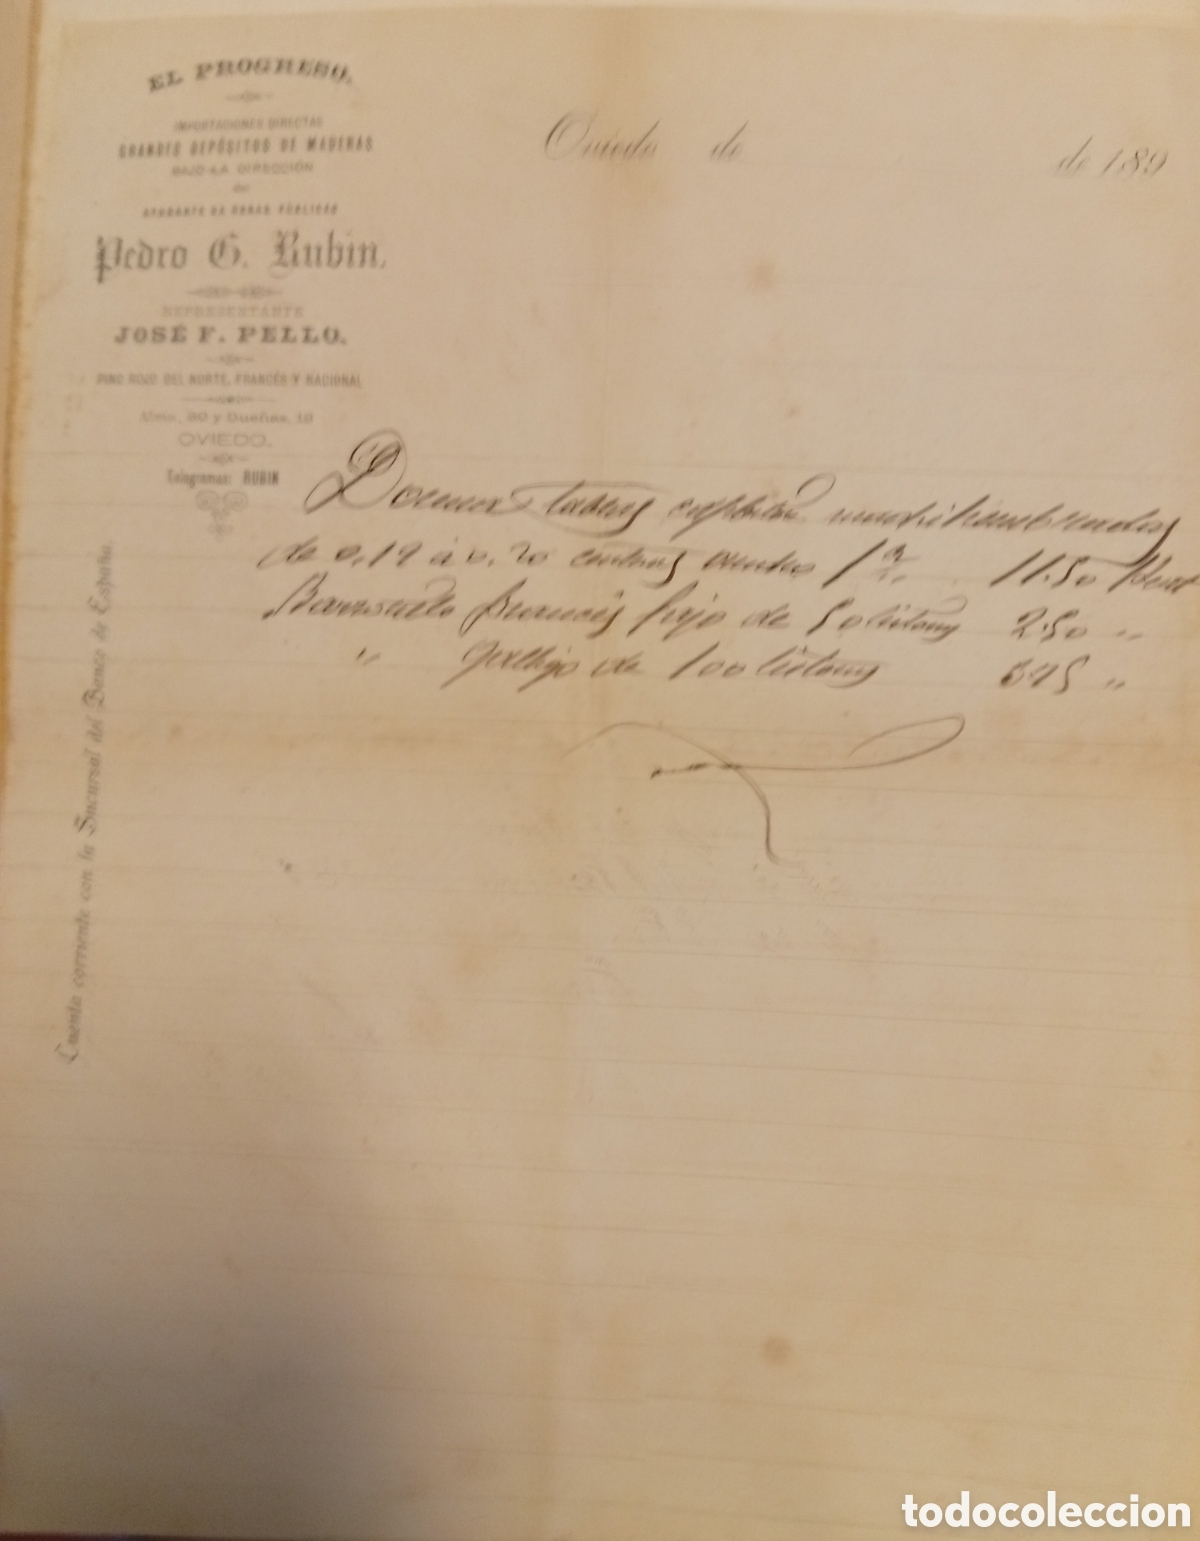 EL PROGRESO.
IMPORTACIONES DIRECTAS
GRANDES DEPÓSITOS DE MADERAS
BAJO LA DIRECCIÓN
del
AYUDANTE DE OBRAS PÚBLICAS
Pedro G. Rubin.
REPRESENTANTE
JOSÉ F. PELLO.
PINO ROJO DEL NORTE, FRANCÉS Y NACIONAL
30 y Dueñas, 12
OVIEDO.
Telegramas: RUBIN
Cuenta corriente con la Sucursal del Banco de España.
Oviedo de de 189
Docena tablas
de 0,19 á 0,20 1ª 11.50
francés fajo de 50 listones 2.50 "
" de 100 listones "
todocoleccion